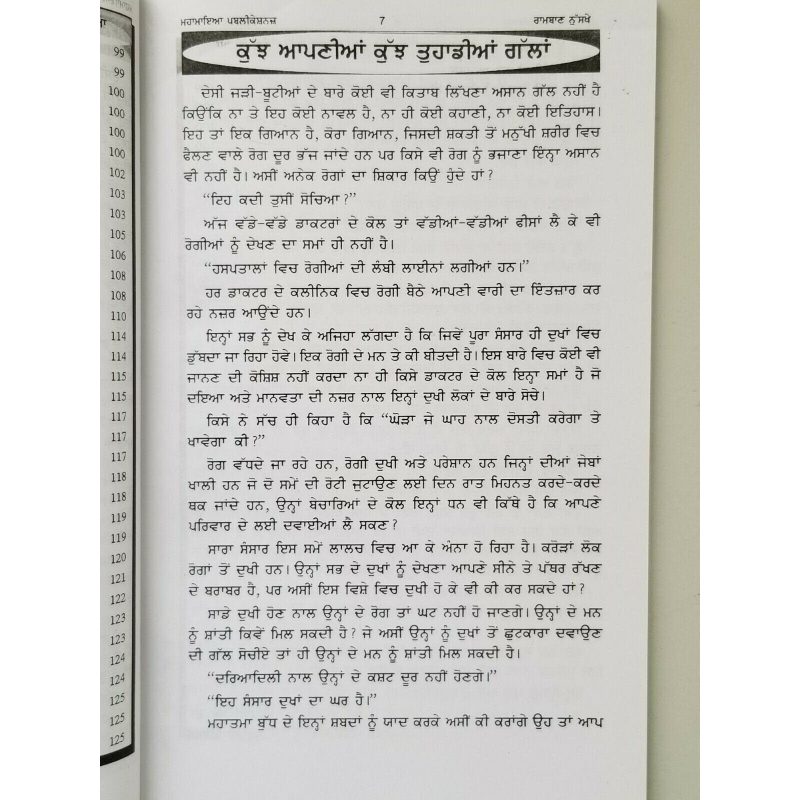 ਮਹਾਮਾਇਆ ਪਬਲੀਕੇਸ਼ਨਜ਼ 7 ਰਾਮਬਾਣ ਨੁੱਸਖੇ
ਕੁੱਝ ਆਪਣੀਆਂ ਕੁੱਝ ਤੁਹਾਡੀਆਂ ਗੱਲਾਂ
ਦੇਸੀ ਜੜੀ-ਬੂਟੀਆਂ ਦੇ ਬਾਰੇ ਕੋਈ ਵੀ ਕਿਤਾਬ ਲਿੱਖਣਾ ਅਸਾਨ ਗੱਲ ਨਹੀਂ ਹੈ
ਕਿਉਂਕਿ ਨਾ ਤੇ ਇਹ ਕੋਈ ਨਾਵਲ ਹੈ, ਨਾ ਹੀ ਕੋਈ ਕਹਾਣੀ, ਨਾ ਕੋਈ ਇਤਿਹਾਸ।
ਇਹ ਤਾਂ ਇਕ ਗਿਆਨ ਹੈ, ਕੋਰਾ ਗਿਆਨ, ਜਿਸਦੀ ਸ਼ਕਤੀ ਤੋਂ ਮਨੁੱਖੀ ਸ਼ਰੀਰ ਵਿਚ
ਫੈਲਣ ਵਾਲੇ ਰੋਗ ਦੂਰ ਭੱਜ ਜਾਂਦੇ ਹਨ ਪਰ ਕਿਸੇ ਵੀ ਰੋਗ ਨੂੰ ਭਜਾਣਾ ਇੰਨ੍ਹਾ ਅਸਾਨ
ਵੀ ਨਹੀਂ ਹੈ। ਅਸੀਂ ਅਨੇਕ ਰੋਗਾਂ ਦਾ ਸ਼ਿਕਾਰ ਕਿਉਂ ਹੁੰਦੇ ਹਾਂ?
“ਇਹ ਕਦੀ ਤੁਸੀਂ ਸੋਚਿਆ?”
ਅੱਜ ਵੱਡੇ-ਵੱਡੇ ਡਾਕਟਰਾਂ ਦੇ ਕੋਲ ਤਾਂ ਵੱਡੀਆਂ-ਵੱਡੀਆਂ ਫੀਸਾਂ ਲੈ ਕੇ ਵੀ
ਰੋਗੀਆਂ ਨੂੰ ਦੇਖਣ ਦਾ ਸਮਾਂ ਹੀ ਨਹੀਂ ਹੈ।
“ਹਸਪਤਾਲਾਂ ਵਿਚ ਰੋਗੀਆਂ ਦੀ ਲੰਬੀ ਲਾਈਨਾਂ ਲਗੀਆਂ ਹਨ।”
ਹਰ ਡਾਕਟਰ ਦੇ ਕਲੀਨਿਕ ਵਿਚ ਰੋਗੀ ਬੈਠੇ ਆਪਣੀ ਵਾਰੀ ਦਾ ਇੰਤਜ਼ਾਰ ਕਰ
ਰਹੇ ਨਜ਼ਰ ਆਉਂਦੇ ਹਨ।
ਇਨ੍ਹਾਂ ਸਭ ਨੂੰ ਦੇਖ ਕੇ ਅਜਿਹਾ ਲੱਗਦਾ ਹੈ ਕਿ ਜਿਵੇਂ ਪੂਰਾ ਸੰਸਾਰ ਹੀ ਦੁਖਾਂ ਵਿਚ
ਡੁੱਬਦਾ ਜਾ ਰਿਹਾ ਹੋਵੇ। ਇਕ ਰੋਗੀ ਦੇ ਮਨ ਤੇ ਕੀ ਬੀਤਦੀ ਹੈ। ਇਸ ਬਾਰੇ ਵਿਚ ਕੋਈ ਵੀ
ਜਾਨਣ ਦੀ ਕੋਸ਼ਿਸ਼ ਨਹੀਂ ਕਰਦਾ ਨਾ ਹੀ ਕਿਸੇ ਡਾਕਟਰ ਦੇ ਕੋਲ ਇਨ੍ਹਾ ਸਮਾਂ ਹੈ ਜੋ
ਦਇਆ ਅਤੇ ਮਾਨਵਤਾ ਦੀ ਨਜ਼ਰ ਨਾਲ ਇਨ੍ਹਾਂ ਦੁਖੀ ਲੋਕਾਂ ਦੇ ਬਾਰੇ ਸੋਚੇ।
ਕਿਸੇ ਨੇ ਸੱਚ ਹੀ ਕਿਹਾ ਹੈ ਕਿ “ਘੋੜਾ ਜੇ ਘਾਹ ਨਾਲ ਦੋਸਤੀ ਕਰੇਗਾ ਤੇ
ਖਾਵੇਗਾ ਕੀ?”
ਰੋਗ ਵੱਧਦੇ ਜਾ ਰਹੇ ਹਨ, ਰੋਗੀ ਦੁਖੀ ਅਤੇ ਪਰੇਸ਼ਾਨ ਹਨ ਜਿਨ੍ਹਾਂ ਦੀਆਂ ਜੇਬਾਂ
ਖਾਲੀ ਹਨ ਜੋ ਦੋ ਸਮੇਂ ਦੀ ਰੋਟੀ ਜੁਟਾਉਣ ਲਈ ਦਿਨ ਰਾਤ ਮਿਹਨਤ ਕਰਦੇ-ਕਰਦੇ
ਥਕ ਜਾਂਦੇ ਹਨ, ਉਨ੍ਹਾਂ ਬੇਚਾਰਿਆਂ ਦੇ ਕੋਲ ਇਨ੍ਹਾਂ ਧਨ ਵੀ ਕਿੱਥੇ ਹੈ ਕਿ ਆਪਣੇ
ਪਰਿਵਾਰ ਦੇ ਲਈ ਦਵਾਈਆਂ ਲੈ ਸਕਣ?
ਸਾਰਾ ਸੰਸਾਰ ਇਸ ਸਮੇਂ ਲਾਲਚ ਵਿਚ ਆ ਕੇ ਅੰਨਾ ਹੋ ਰਿਹਾ ਹੈ। ਕਰੋੜਾਂ ਲੋਕ
ਰੋਗਾਂ ਤੋਂ ਦੁਖੀ ਹਨ। ਉਨ੍ਹਾਂ ਸਭ ਦੇ ਦੁਖਾਂ ਨੂੰ ਦੇਖਣਾ ਆਪਣੇ ਸੀਨੇ ਤੇ ਪੱਥਰ ਰੱਖਣ
ਦੇ ਬਰਾਬਰ ਹੈ, ਪਰ ਅਸੀਂ ਇਸ ਵਿਸ਼ੇ ਵਿਚ ਦੁਖੀ ਹੋ ਕੇ ਵੀ ਕੀ ਕਰ ਸਕਦੇ ਹਾਂ?
ਸਾਡੇ ਦੁਖੀ ਹੋਣ ਨਾਲ ਉਨ੍ਹਾਂ ਦੇ ਰੋਗ ਤਾਂ ਘਟ ਨਹੀਂ ਹੋ ਜਾਣਗੇ। ਉਨ੍ਹਾਂ ਦੇ ਮਨ
ਨੂੰ ਸ਼ਾਂਤੀ ਕਿਵੇਂ ਮਿਲ ਸਕਦੀ ਹੈ? ਜੇ ਅਸੀਂ ਉਨ੍ਹਾਂ ਨੂੰ ਦੁਖਾਂ ਤੋਂ ਛੁਟਕਾਰਾ ਦਵਾਉਣ
ਦੀ ਗੱਲ ਸੋਚੀਏ ਤਾਂ ਹੀ ਉਨ੍ਹਾਂ ਦੇ ਮਨ ਨੂੰ ਸ਼ਾਂਤੀ ਮਿਲ ਸਕਦੀ ਹੈ।
“ਦਰਿਆਦਿਲੀ ਨਾਲ ਉਨ੍ਹਾਂ ਦੇ ਕਸ਼ਟ ਦੂਰ ਨਹੀਂ ਹੋਣਗੇ।”
“ਇਹ ਸੰਸਾਰ ਦੁਖਾਂ ਦਾ ਘਰ ਹੈ।”
ਮਹਾਤਮਾ ਬੁੱਧ ਦੇ ਇਨ੍ਹਾਂ ਸ਼ਬਦਾਂ ਨੂੰ ਯਾਦ ਕਰਕੇ ਅਸੀਂ ਕੀ ਕਰਾਂਗੇ ਉਹ ਤਾਂ ਆਪ
99
99
100
100
100
100
102
103
103
105
106
108
108
110
114
114
115
115
117
117
117
118
118
119
119
120
121
122
123
123
124
124
125
125
125